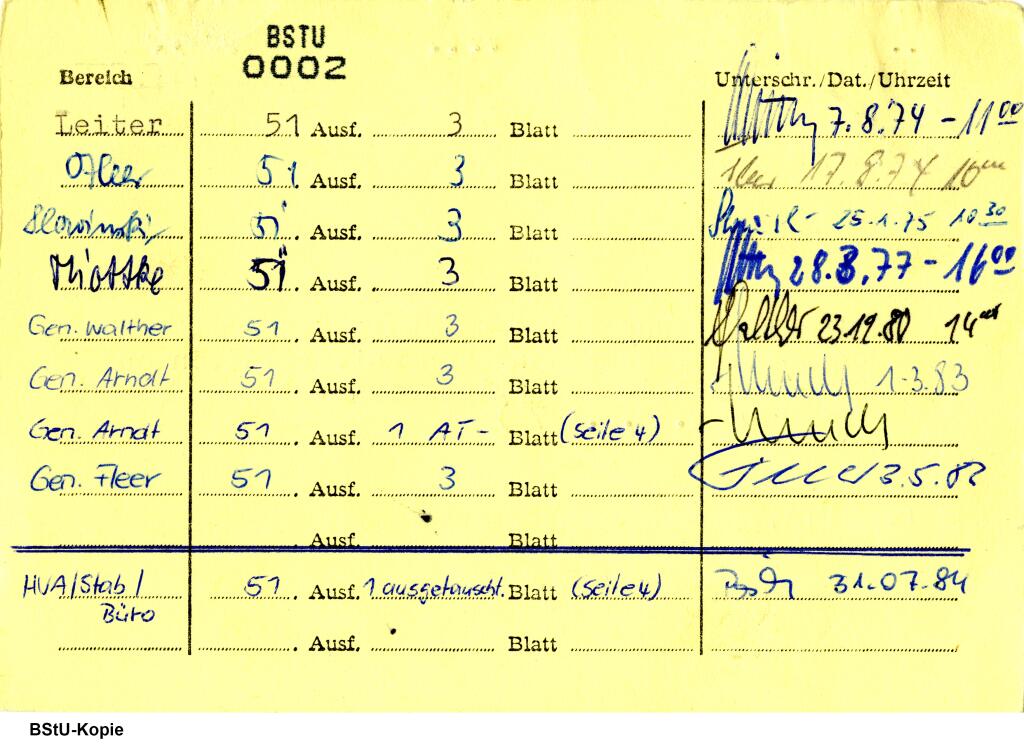 BSTU
0002
Bereich Unterschr./Dat./Uhrzeit
Leiter 51. Ausf. 3 Blatt 7.8.74 - 11 00
51. Ausf. 3 Blatt 17.8.74
Slowinski 51. Ausf. 3 Blatt 25.1.75 10 30
Miottke 51. Ausf. 3 Blatt 28.3.77 - 16 00
Gen. Walther 51. Ausf. 3 Blatt 80 14
Gen. Arndt 51. Ausf. 3 Blatt 1.3.83
Gen. Arndt 51. Ausf. 1 AT- Blatt (Seite 4)
Gen. Fleer 51. Ausf. 3 Blatt 3.5.83
. Ausf. Blatt
HVA/Stab/ 51. Ausf. 1 ausgetauscht. Blatt (Seite 4) 31.07.84
Büro
. Ausf. Blatt
BStU-Kopie